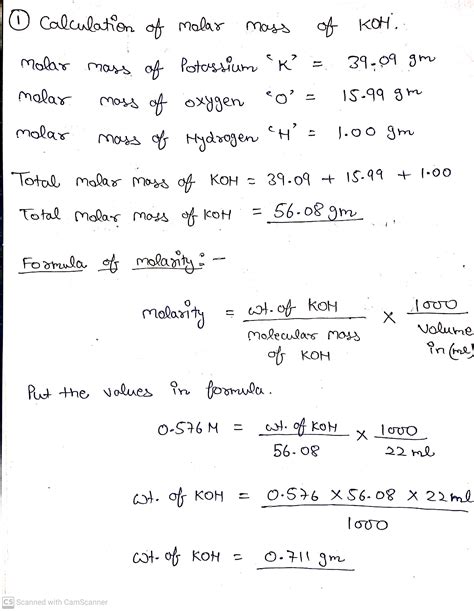 ① Calculation of molar mass of KOH.
molar mass of Potassium 'K' = 39.09 gm
molar mass of oxygen 'O' = 15.99 gm
molar mass of Hydrogen 'H' = 1.00 gm
Total molar mass of KOH = 39.09 + 15.99 + 1.00
Total molar mass of KOH = 56.08 gm
Formula of molarity :-
molarity = wt. of KOH / molecular mass of KOH × 1000 / Volume in (ml)
Put the values in formula.
0.576 M = wt. of KOH / 56.08 × 1000 / 22 ml
wt. of KOH = 0.576 × 56.08 × 22 ml / 1000
wt. of KOH = 0.711 gm
CS Scanned with CamScanner